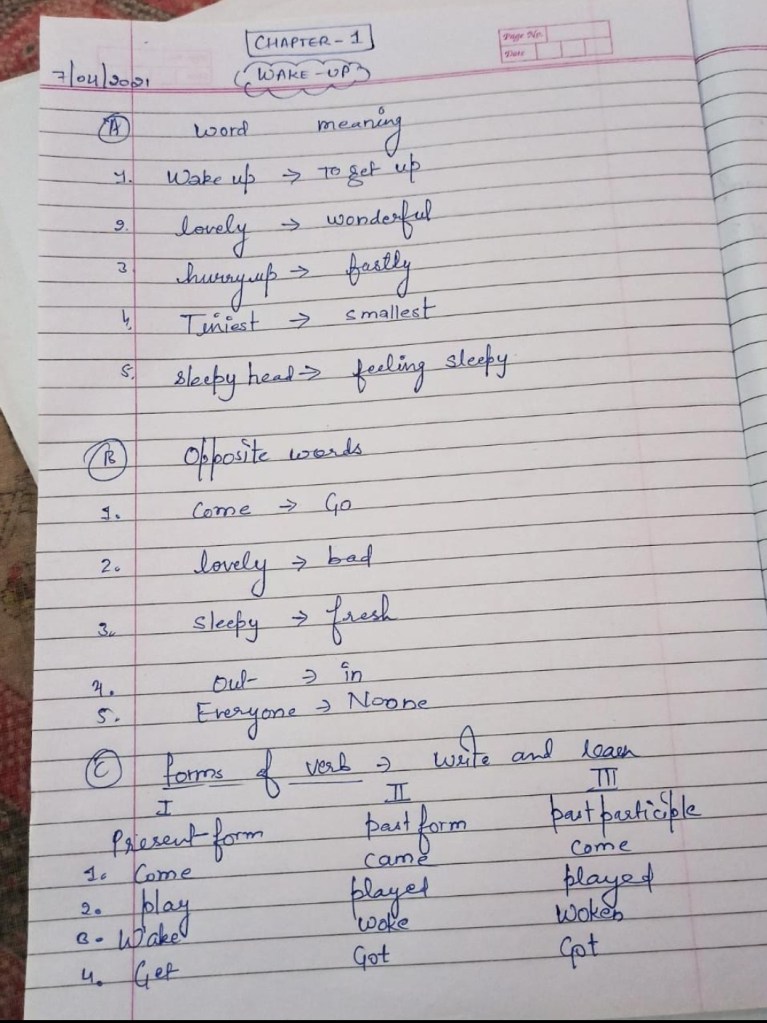 CHAPTER-1
Page No.
Date
7/04/2021
WAKE-UP
A word meaning
1. Wake up → To get up
2. lovely → wonderful
3 hurryup → fastly
4. Tiniest → smallest
5. sleepy head → feeling sleepy
B Opposite words
1. Come → Go
2. lovely → bad
3. sleepy → fresh
4. Out → in
5. Everyone → Noone
C forms of verb → write and learn
I II III
Present form past form past participle
1. Come came come
2. play played played
3. Wake woke woken
4. Get Got Got